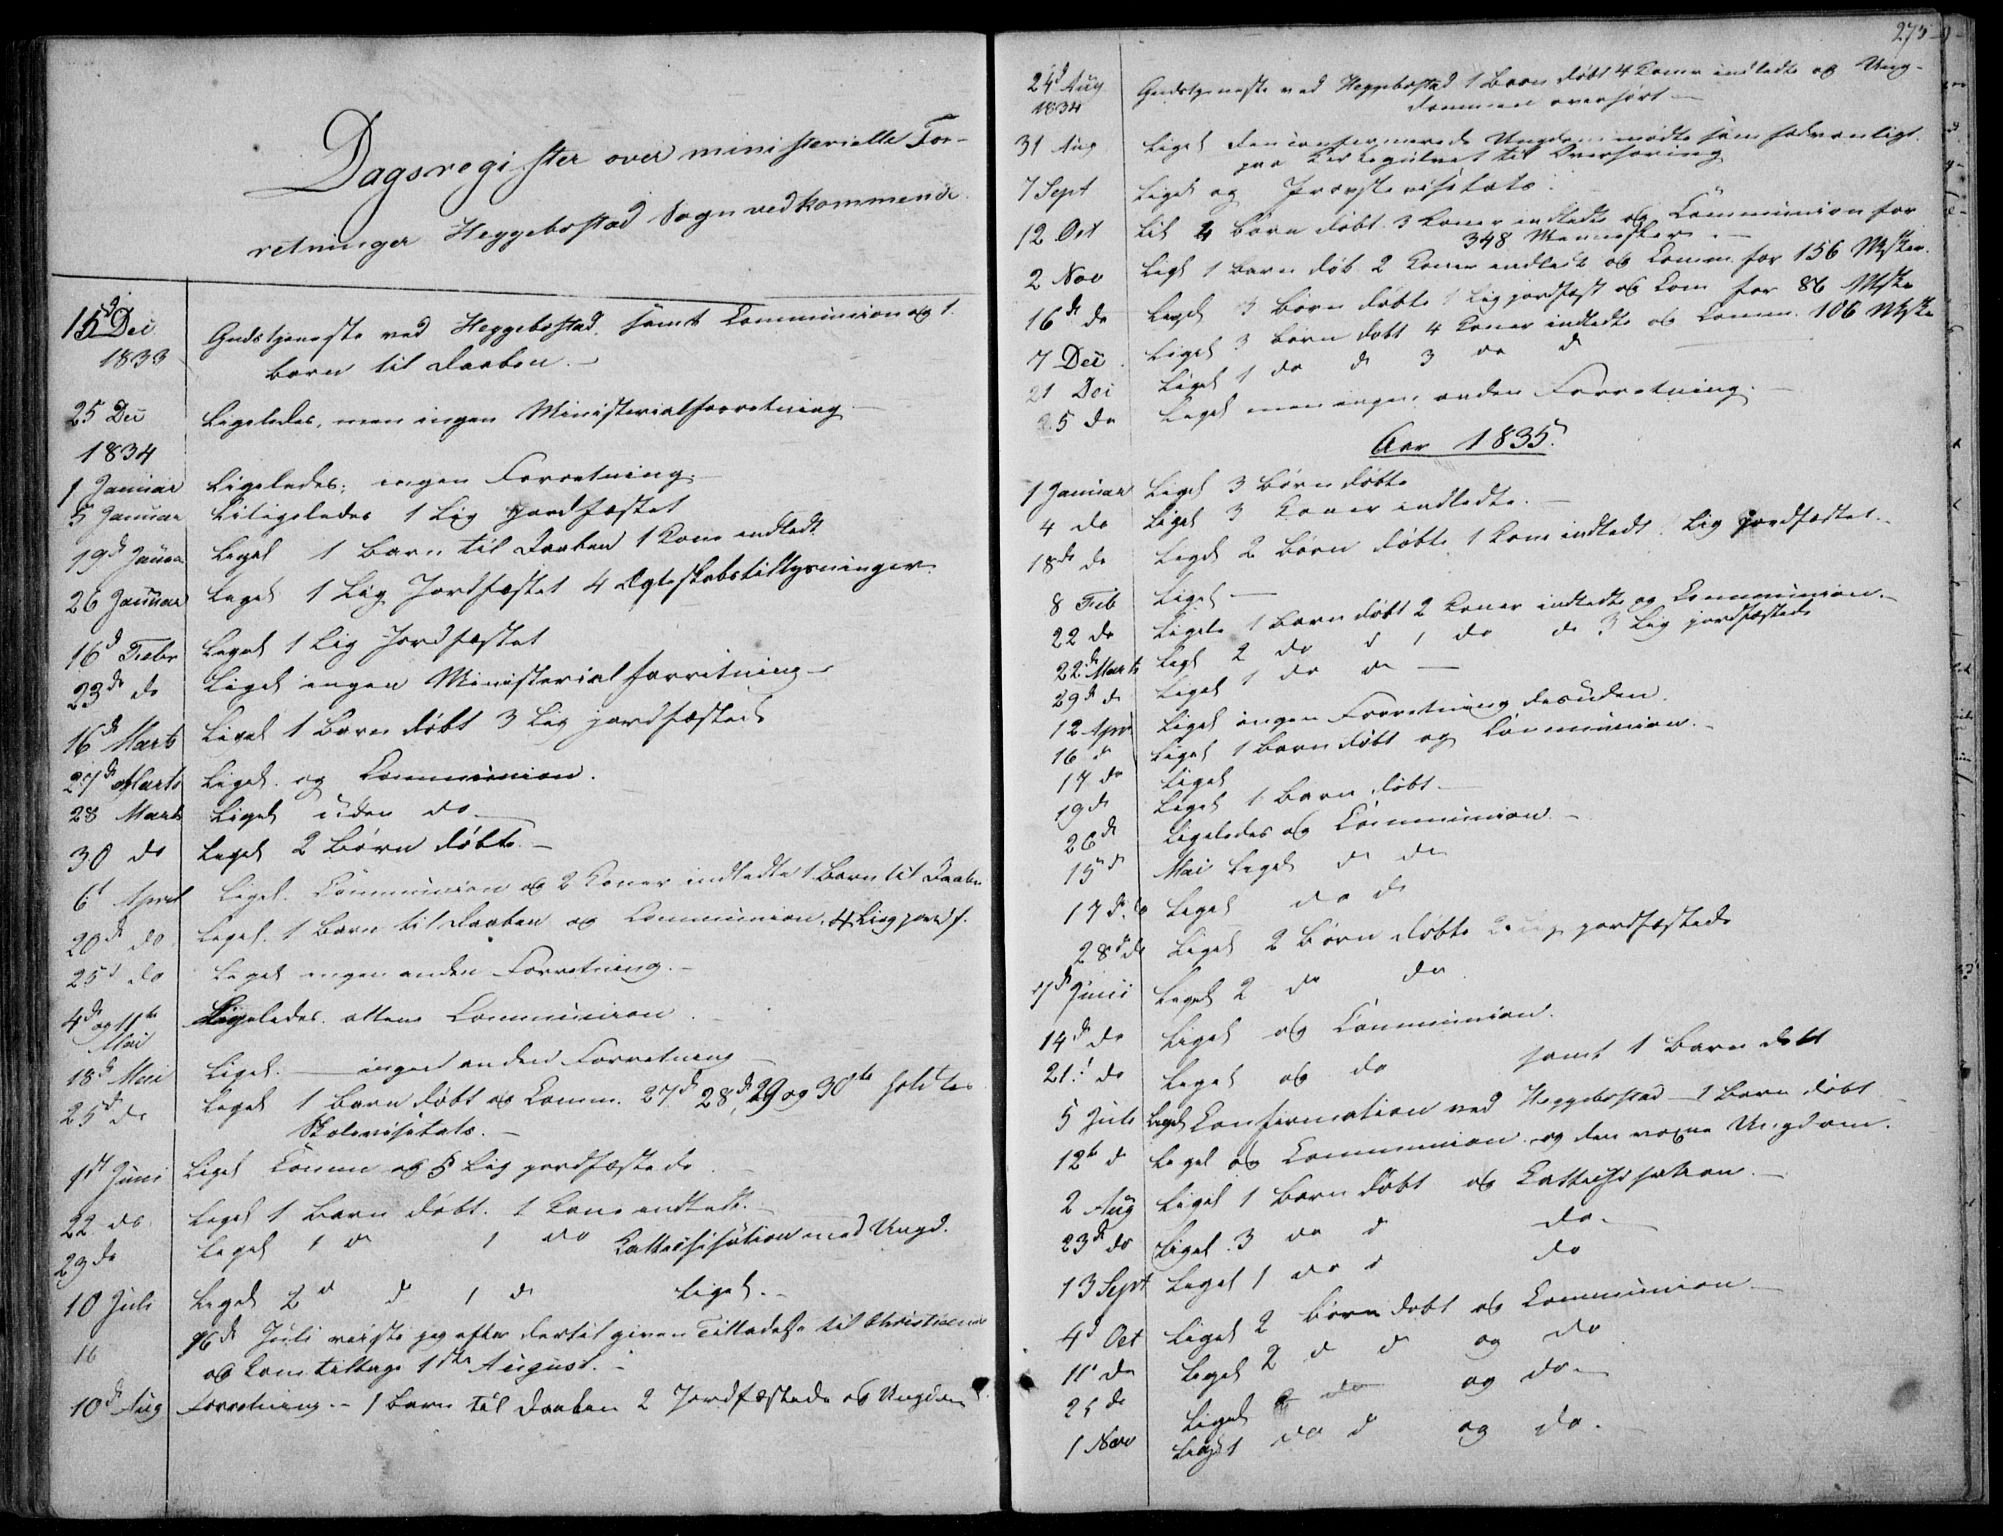 Dagsregister over ministerielle For-
retninger Heggebostad Sogn vedkommende.
15d Dec 1833 Gudstjeneste ved Heggebostad, samt Communion og 1
barn til Daaben.
25 Dec Ligeledes, men ingen Ministerialforretning
1834
1 Januar Ligeledes; ingen Forretning
5 Januar Ligeledes 1 Lig Jordfæstet
19d Januar Liget 1 Barn til Daaben 1 Kone indledt
26 Januar Liget 1 Lig Jordfæstet 4 Ægteskabstillysninger
16d Febr Liget 1 Lig Jordfæstet
23de do Liget ingen Ministerialforretning
16de Marts Liget 1 Barn døbt 3 Lig jordfæstede
27de Marts Liget og Communion.
28 Marts Liget uden do
30 do Liget 2 Børn døbte
6t April Liget. Communion og 2 Koner indledte 1 Barn til Daaben
20de do Liget. 1 Barn til Daaben og Communion, 4 Lig jordf.
25d do Liget ingen anden Forretning.
4de og 11te Mai Ligeledes Communion
18de Mai Liget. ingen anden Forretning
25de do Liget 1 Barn døbt og Comm. 27de 28de, 29 og 30te holdtes
Skolevisitats.
1st Juni Liget Comm og 5 Lig jordfæstede
22 do Liget 1 Barn døbt. 1 Kone indledt.
29 do Liget 1 d 1 do Katteschisation med Ungd.
10 Juli Liget 2 d d 1 d Liget.
16 16de Juli reiste jeg efter dertil given Tilladelse til Christiania
og kom tilbage 1ste August.
10de Aug Forretning 1 Barn til Daaben 2 Jordfæstede og Ungdom
275
24d Aug 1834 Gudstjeneste ved Heggebostad 1 Barn døbt 4 Koner indledte og Ung-
dommen overhørt
31 Aug Liget den confirmerede Ungdom mødte som sædvanligt
paa Kirkegulvet til Overhøring
7 Sept Liget og Provstevisitats.
12 Oct Lit 4 Børn døbt. 3 Koner indledte og Communion for
348 Mennesker.
2 Nov Ligt 1 Barn døb. 2 Koner indledt og Comm. for 156 Msker.
16de do Liget 3 Børn døbte 1 Lig jordfæst og Com for 86 Mske
7 Dec Liget 3 Børn døbt 4 Koner indledte og Comm. 106 Mske
21 Dec Liget 1 do d 3 do d
25 do Liget men ingen anden Forretning.
Aar 1835.
1 Januar Liget 3 Børn døbte
4 do Liget 3 Koner indledte.
18de do Liget 2 Børn døbte 1 Kone indledt Lig jordfæstet.
8 Feb Liget
22 do Ligele 1 Barn døbt 2 Koner indledte og Communion.
22de Marts Ligt 2 do d 1 do do 3 Lig jordfæstede
29d d Liget 1 do do
12 Apr Liget ingen Forretning desuden.
16 d Liget 1 Barn døbt og Communion.
17 do Liget
19 do Liget 1 Barn døbt
26 d Ligeledes og Communion
15 d Mai Liget d do
17 d. do Liget do d
28d do Liget 2 Børn døbte jordfæstede
7d Junii Liget 2 do do
14d do Liget og Communion.
21. do Liget og do samt 1 Barn døbt
5 Juli Liget Confirmation ved Heggebostad 1 Barn døbt
12te d Liget og Communion og den voxne Ungdom.
2 Aug Liget 1 Barn døbt og Kattechisation.
23d do Liget. 3 do d do.
13 Sept Liget 1 do d do
4d Oct Liget 2 Børn døbt og Communion
11 do Liget 2 d d og do
25 do Liget do og do
1 Nov Liget 1 do d og do.